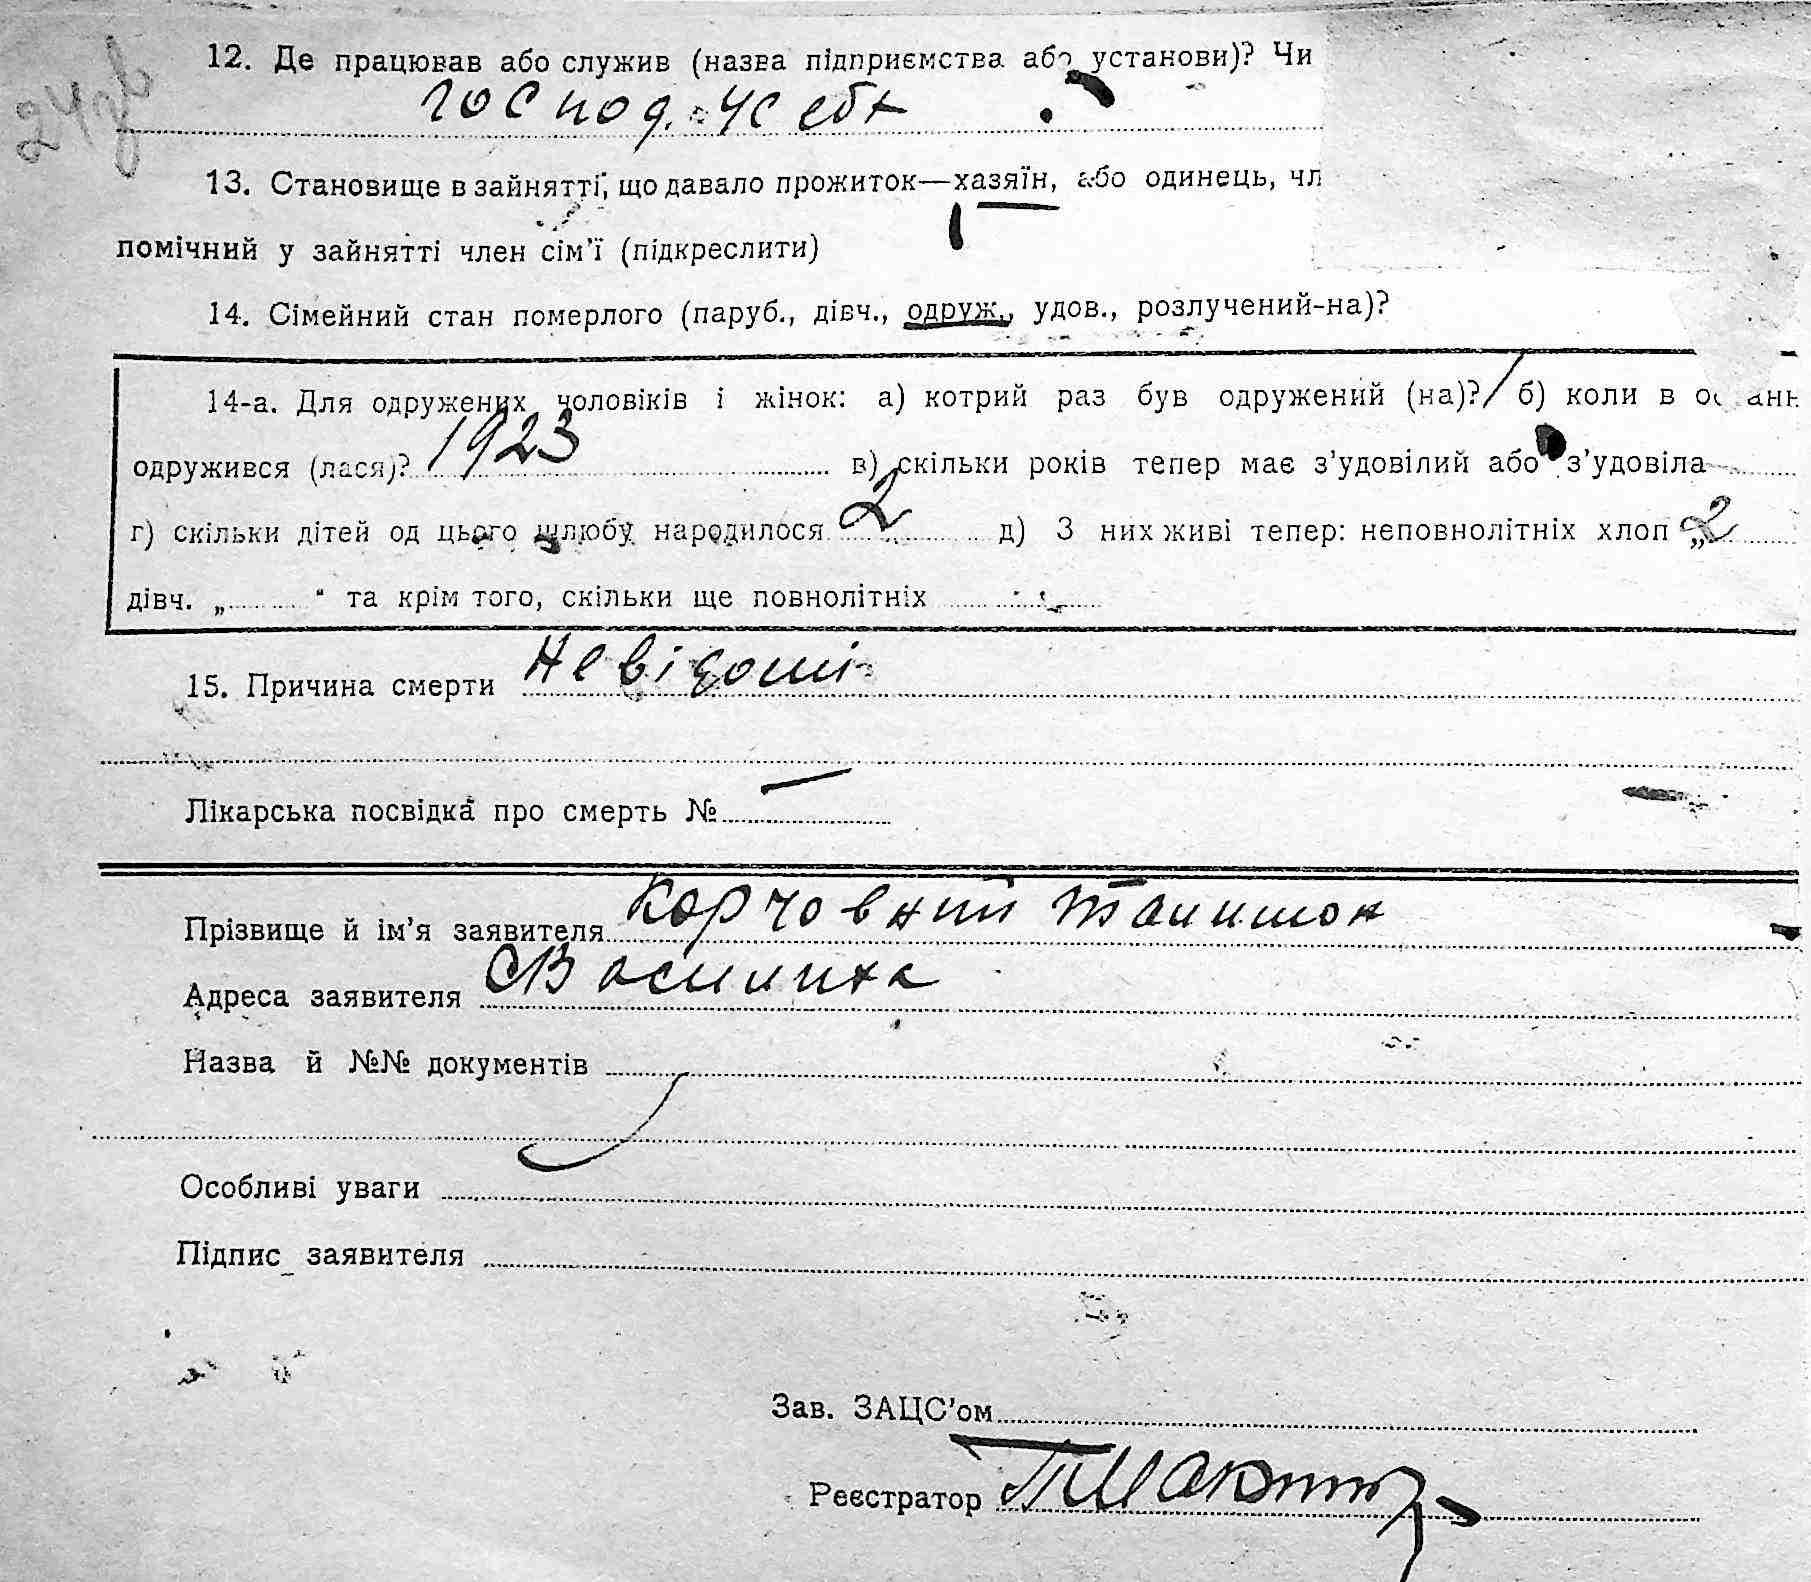 12. Де працював або служив (назва підприємства або установи)? Чи
господ. у себя
13. Становище в зайнятті, що давало прожиток—хазяїн, або одинець, чл
помічний у зайнятті член сім'ї (підкреслити)
14. Сімейний стан померлого (паруб., дівч., одруж., удов., розлучений-на)?
14-а. Для одружених чоловіків і жінок: а) котрий раз був одружений (на)? / б) коли в останн
одружився (лася)? 1923 в) скільки років тепер має з'удовілий або з'удовіла
г) скільки дітей од цього шлюбу народилося 2 д) З них живі тепер: неповнолітніх хлоп „2
дівч. „ " та крім того, скільки ще повнолітніх
15. Причина смерти Невідомі
Лікарська посвідка про смерть № —
Прізвище й ім'я заявителя Корчовний
Адреса заявителя
Назва й №№ документів
Особливі уваги
Підпис заявителя
Зав. ЗАЦС'ом
Реєстратор